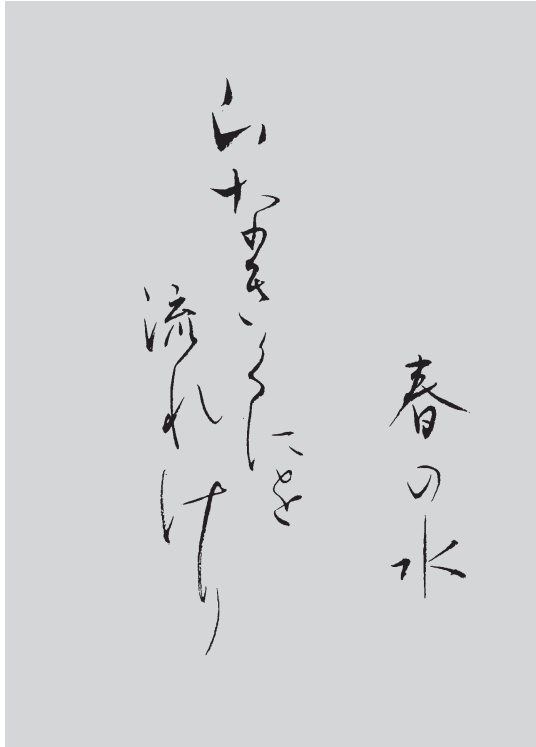 春の水
山なきくにを
流れけり